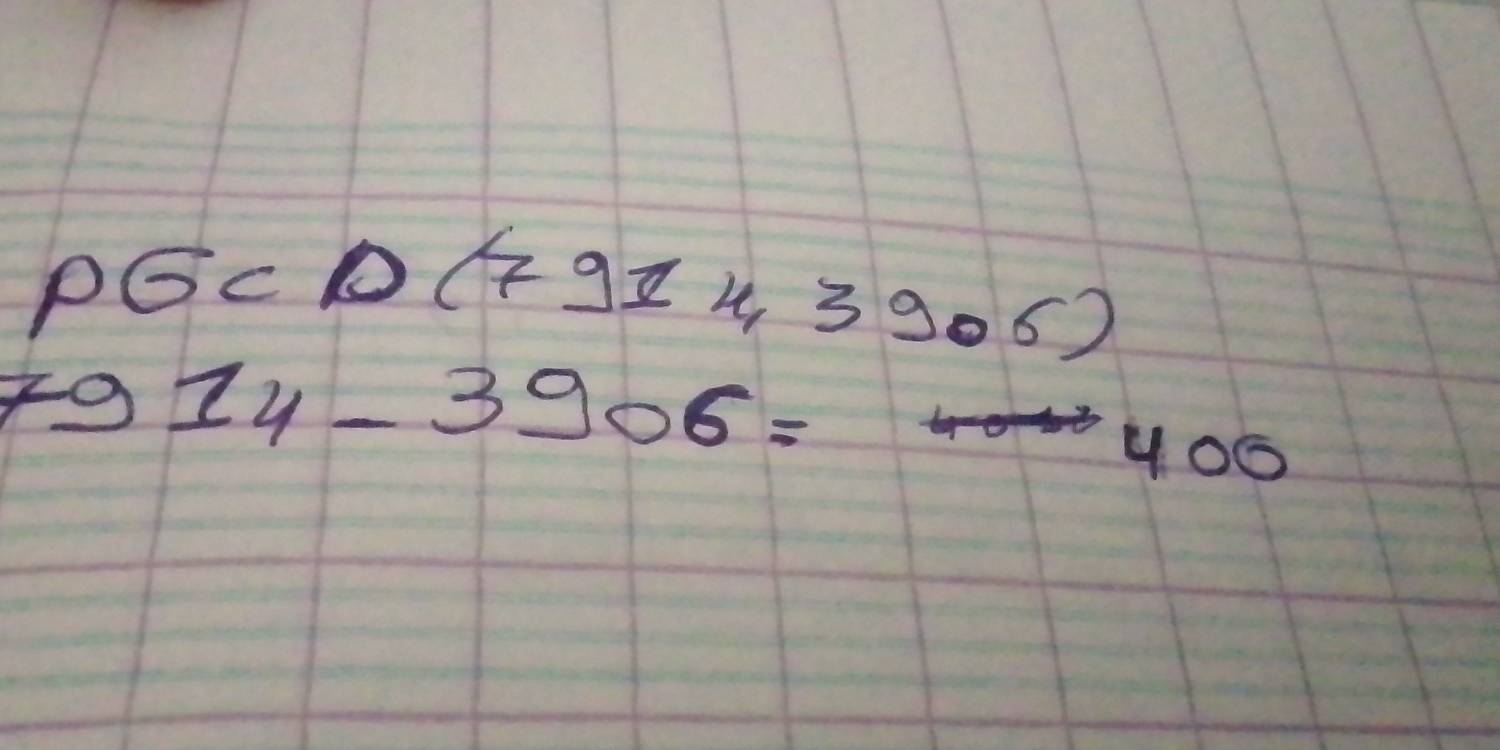 PGCD(7914,3906)
7914-3906= 400